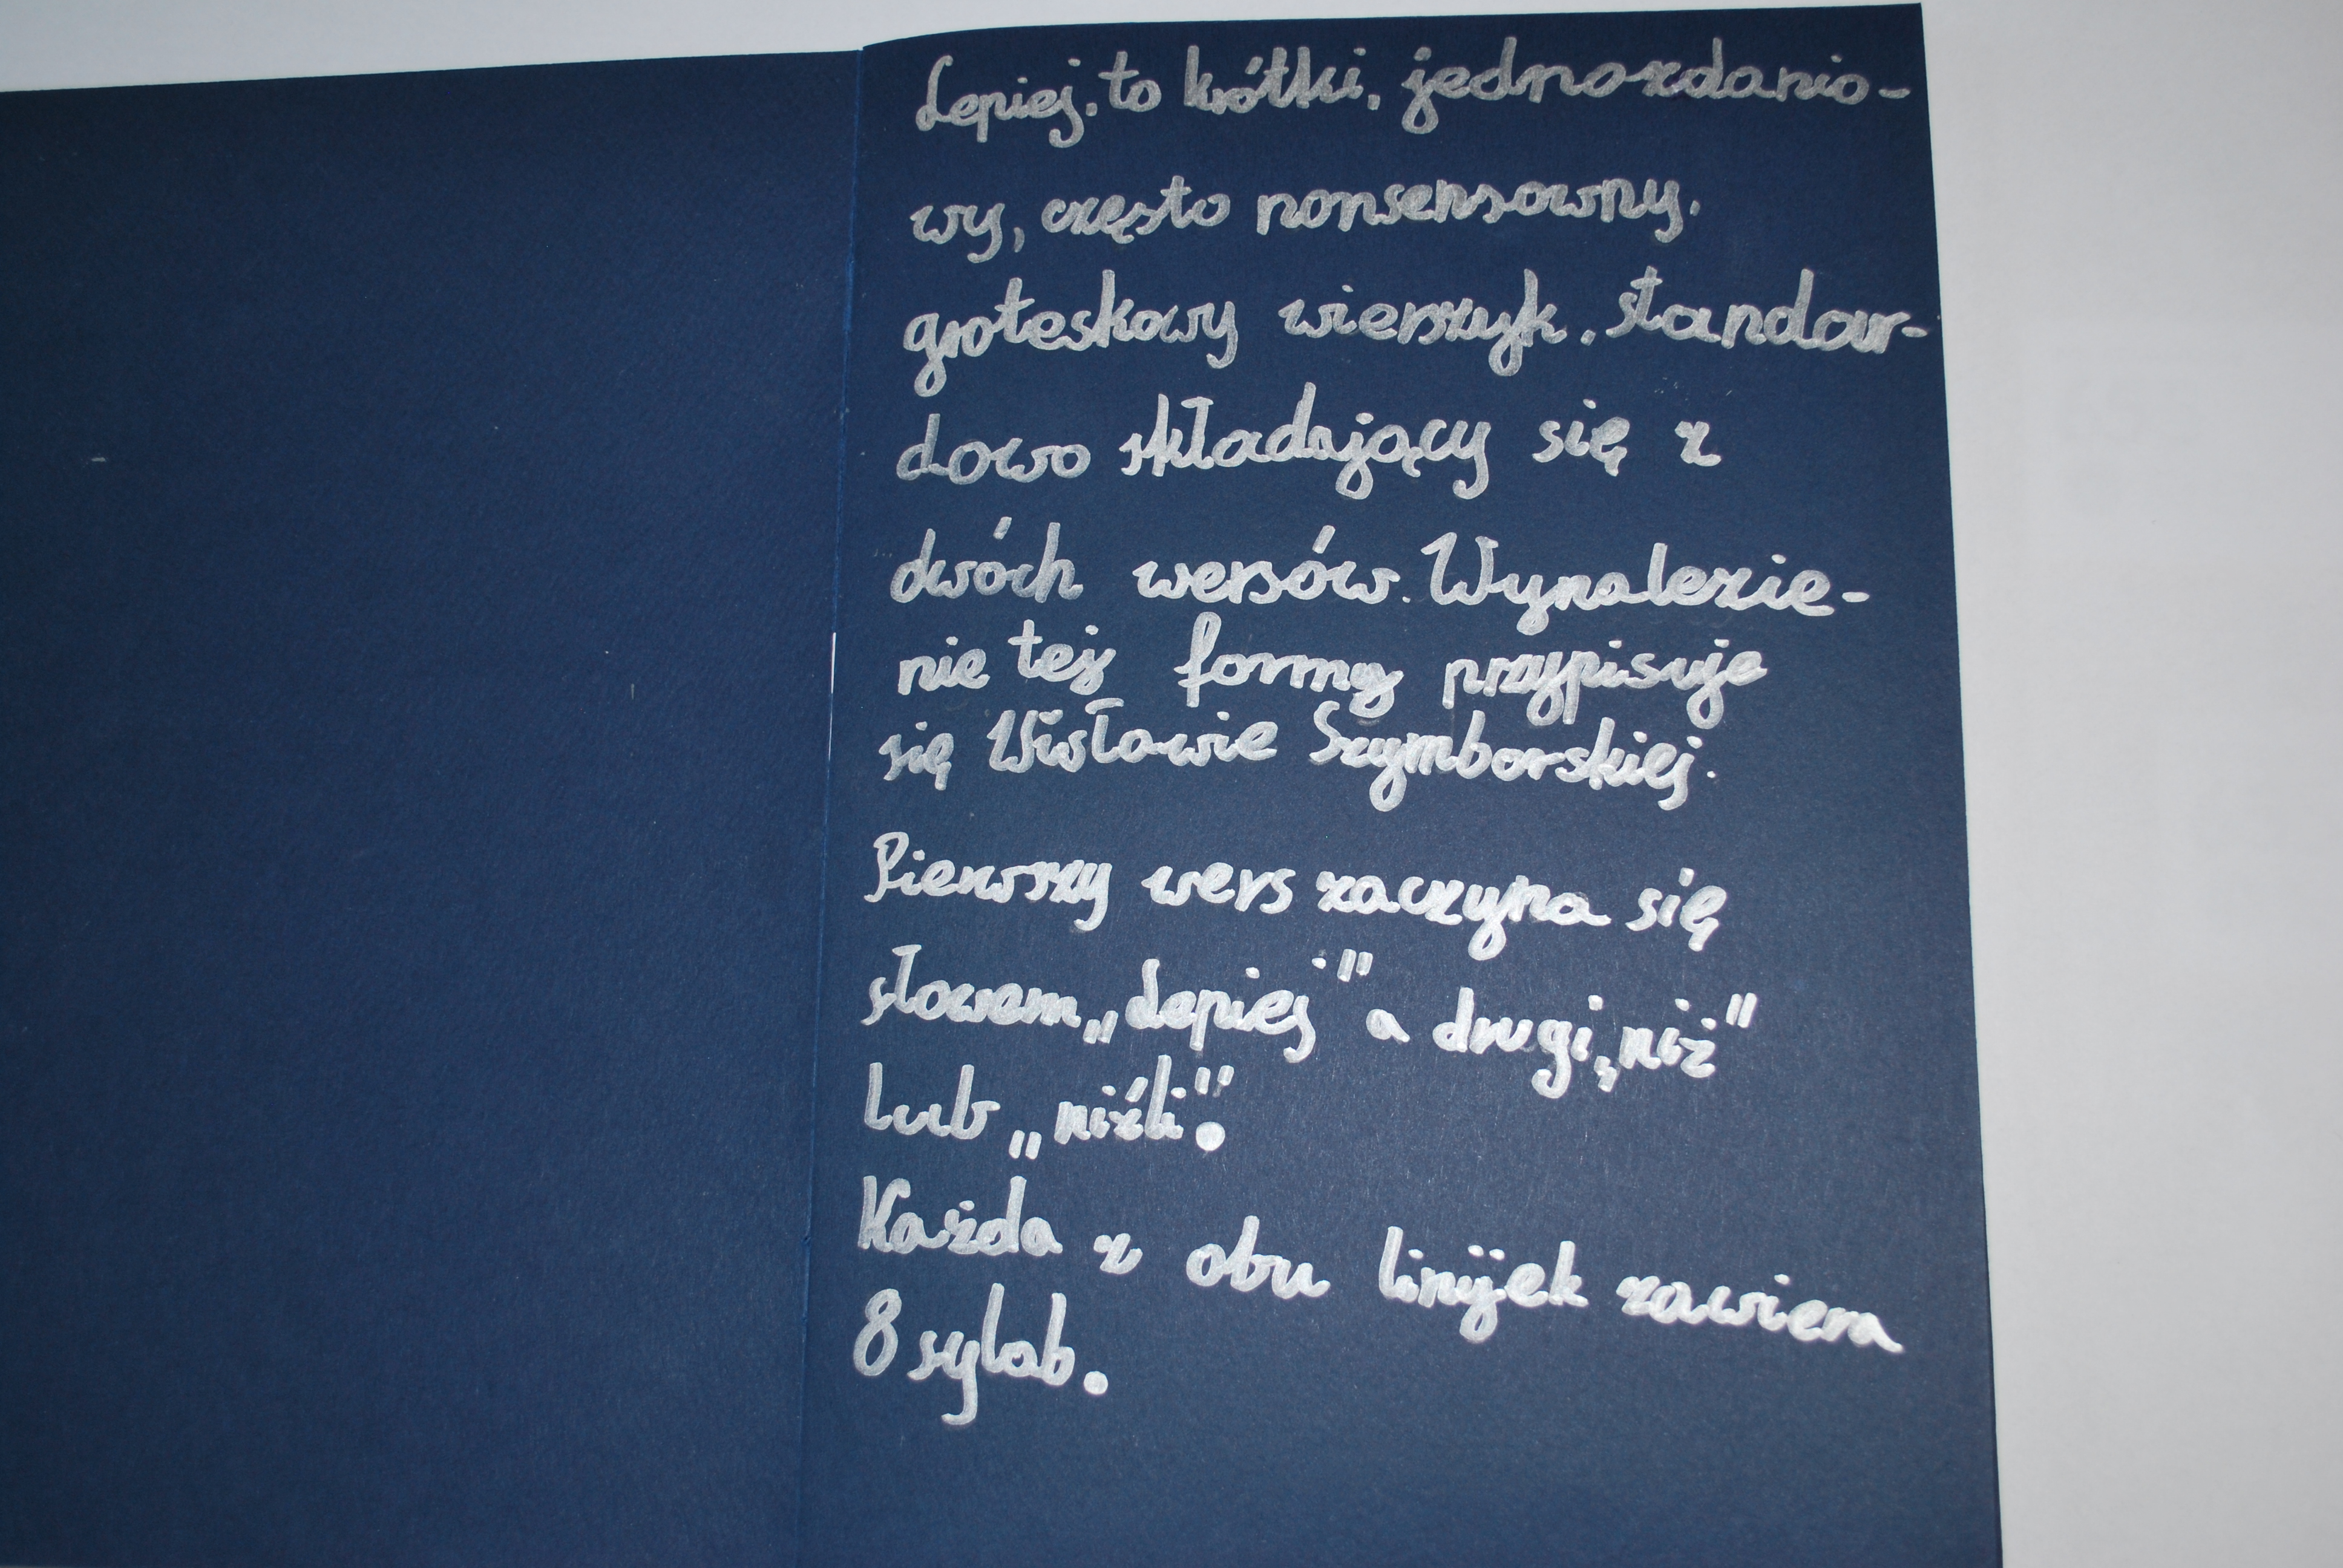 Lepiej, to krótki, jednozdanio-
wy, często nonsensowny,
groteskowy wierszyk, standar-
dowo składający się z
dwóch wersów. Wynalezie-
nie tej formy przypisuje
się Wisławie Szymborskiej.
Pierwszy wers zaczyna się
słowem „Lepiej" a drugi „niż"
lub „niźli".
Każda z obu linijek zawiera
8 sylab.